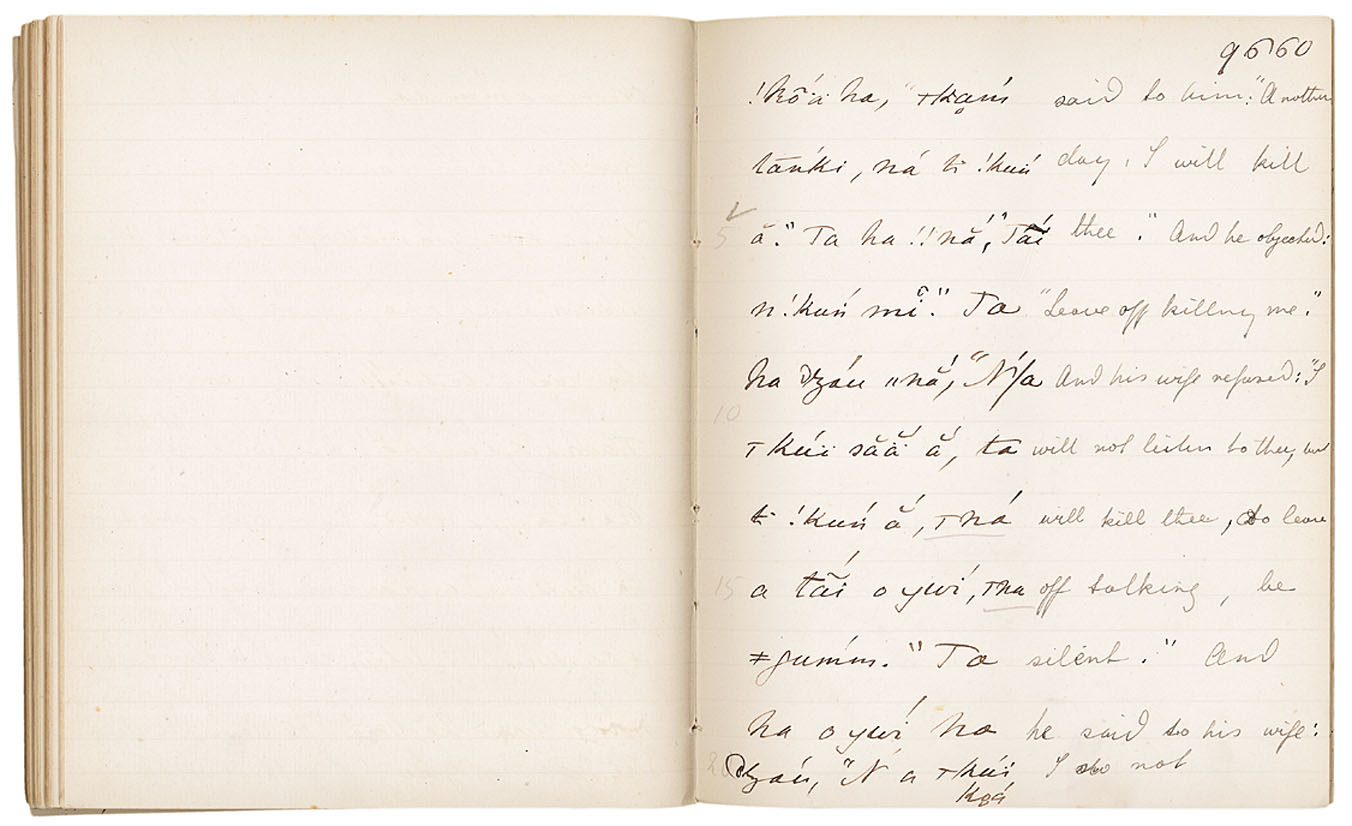 9660
!kṓä ha, "ꞱKą́ní said to him: "Another
tánki, ná ti !kuń day, I will kill
5 ă." Ta ha !!nắ, "Tấí thee." And he objected:
n !kuń mȉ." Ta "Leave off killing me."
ha dzáu "nắ, "N/a And his wife refused: "I
10
ꞱKúï săă ắ, ta will not listen to thee, but
ti !kuń ắ, Ʇná will kill thee, do leave
15 a tấí o ywí, Ʇna off talking, be
ǂgumḿ." Ta silent." And
ha o ywí ha he said to his wife:
20 dzáu, "N a Ʇkúï, I do not